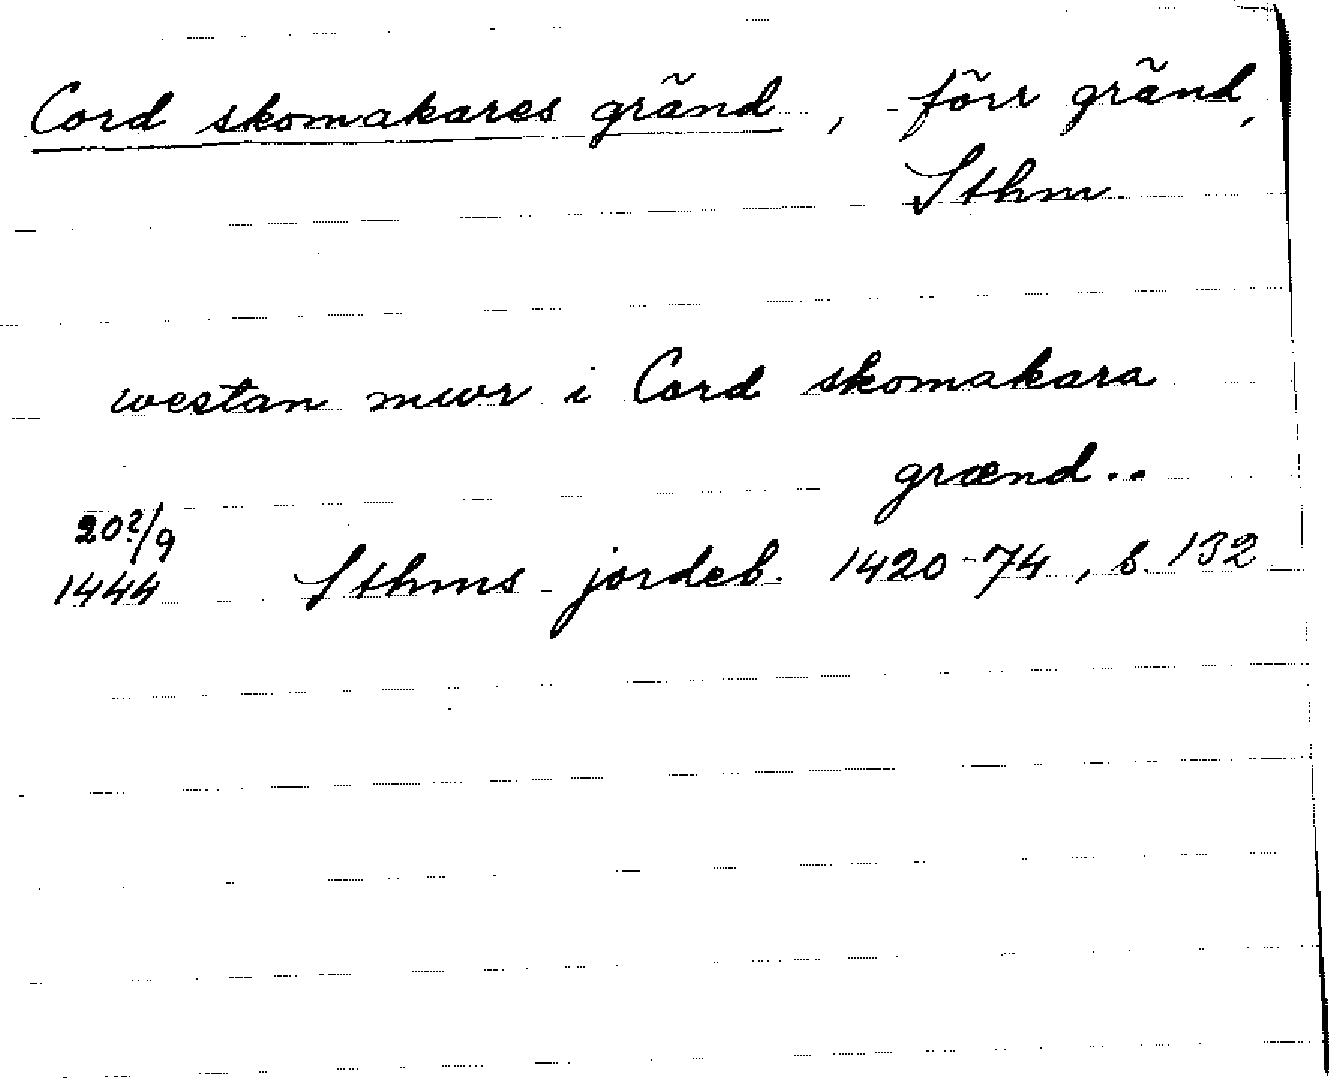 Cord skomakares gränd, förr gränd,
Sthm
westan mwr i Cord skomakara
grænd..
20?/9
1444 Sthms jordeb. 1420-74, s. 132